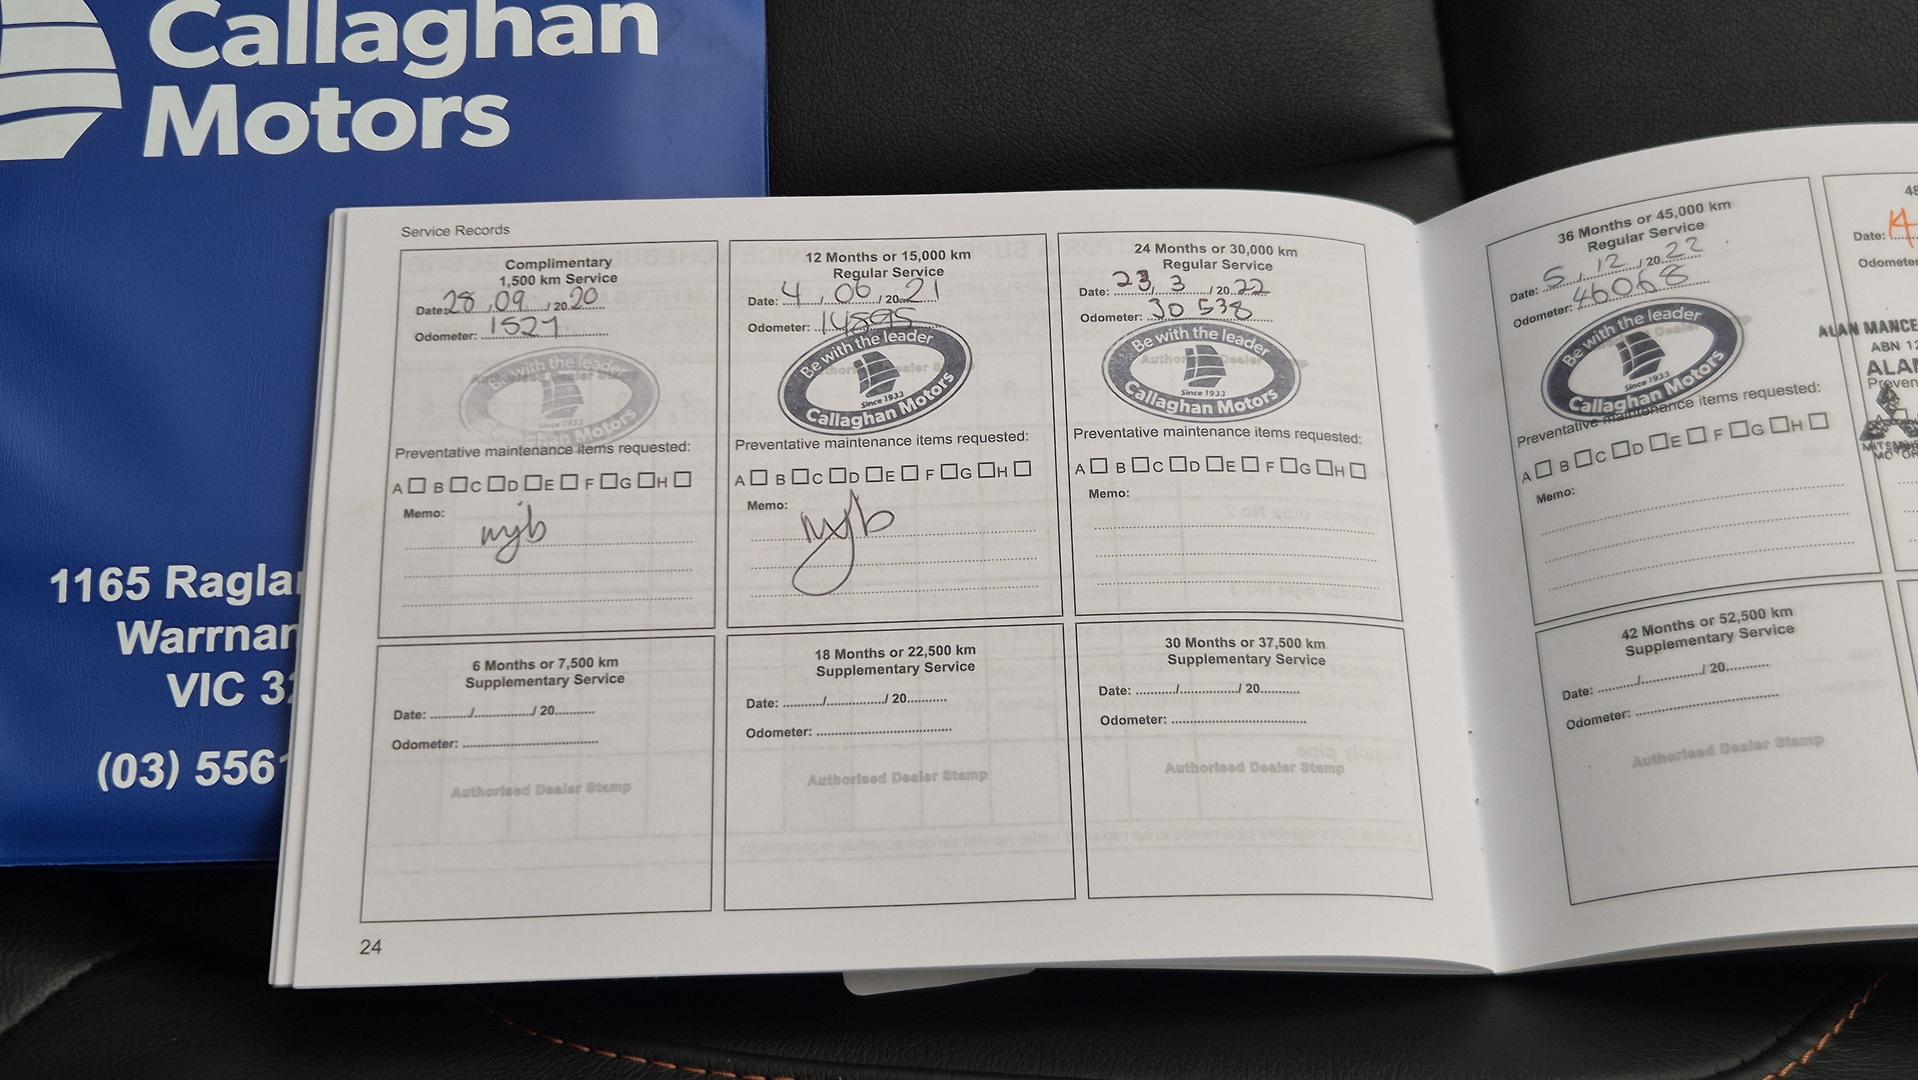 Callaghan
Motors
1165 Raglan
Warrnam
VIC 32
(03) 5561
Service Records
Complimentary
1,500 km Service
Date: 28 / 09 / 20 20
Odometer: 1527
Be with the leader
Since 1933
Callaghan Motors
Preventative maintenance items requested:
A B C D E F G H
Memo:
mjb
12 Months or 15,000 km
Regular Service
Date: 4 / 06 / 20 21
Odometer: 14895
Be with the leader
Since 1933
Callaghan Motors
Preventative maintenance items requested:
A B C D E F G H
Memo:
mjb
24 Months or 30,000 km
Regular Service
Date: 23 / 3 / 20 22
Odometer: 30 538
Be with the leader
Since 1933
Callaghan Motors
Preventative maintenance items requested:
A B C D E F G H
Memo:
6 Months or 7,500 km
Supplementary Service
Date: ........./............../ 20..........
Odometer: ..................................
Authorised Dealer Stamp
18 Months or 22,500 km
Supplementary Service
Date: ........./............../ 20..........
Odometer: ..................................
Authorised Dealer Stamp
30 Months or 37,500 km
Supplementary Service
Date: ........./............../ 20..........
Odometer: ..................................
Authorised Dealer Stamp
24
36 Months or 45,000 km
Regular Service
Date: 5 / 12 / 20 22
Odometer: 46068
Be with the leader
Since 1933
Callaghan Motors
Preventative maintenance items requested:
A B C D E F G H
Memo:
42 Months or 52,500 km
Supplementary Service
Date: ........./............../ 20..........
Odometer: ..................................
Authorised Dealer Stamp
48
Date: 14
Odometer
ALAN MANCE
ABN 12
ALAN
Preven